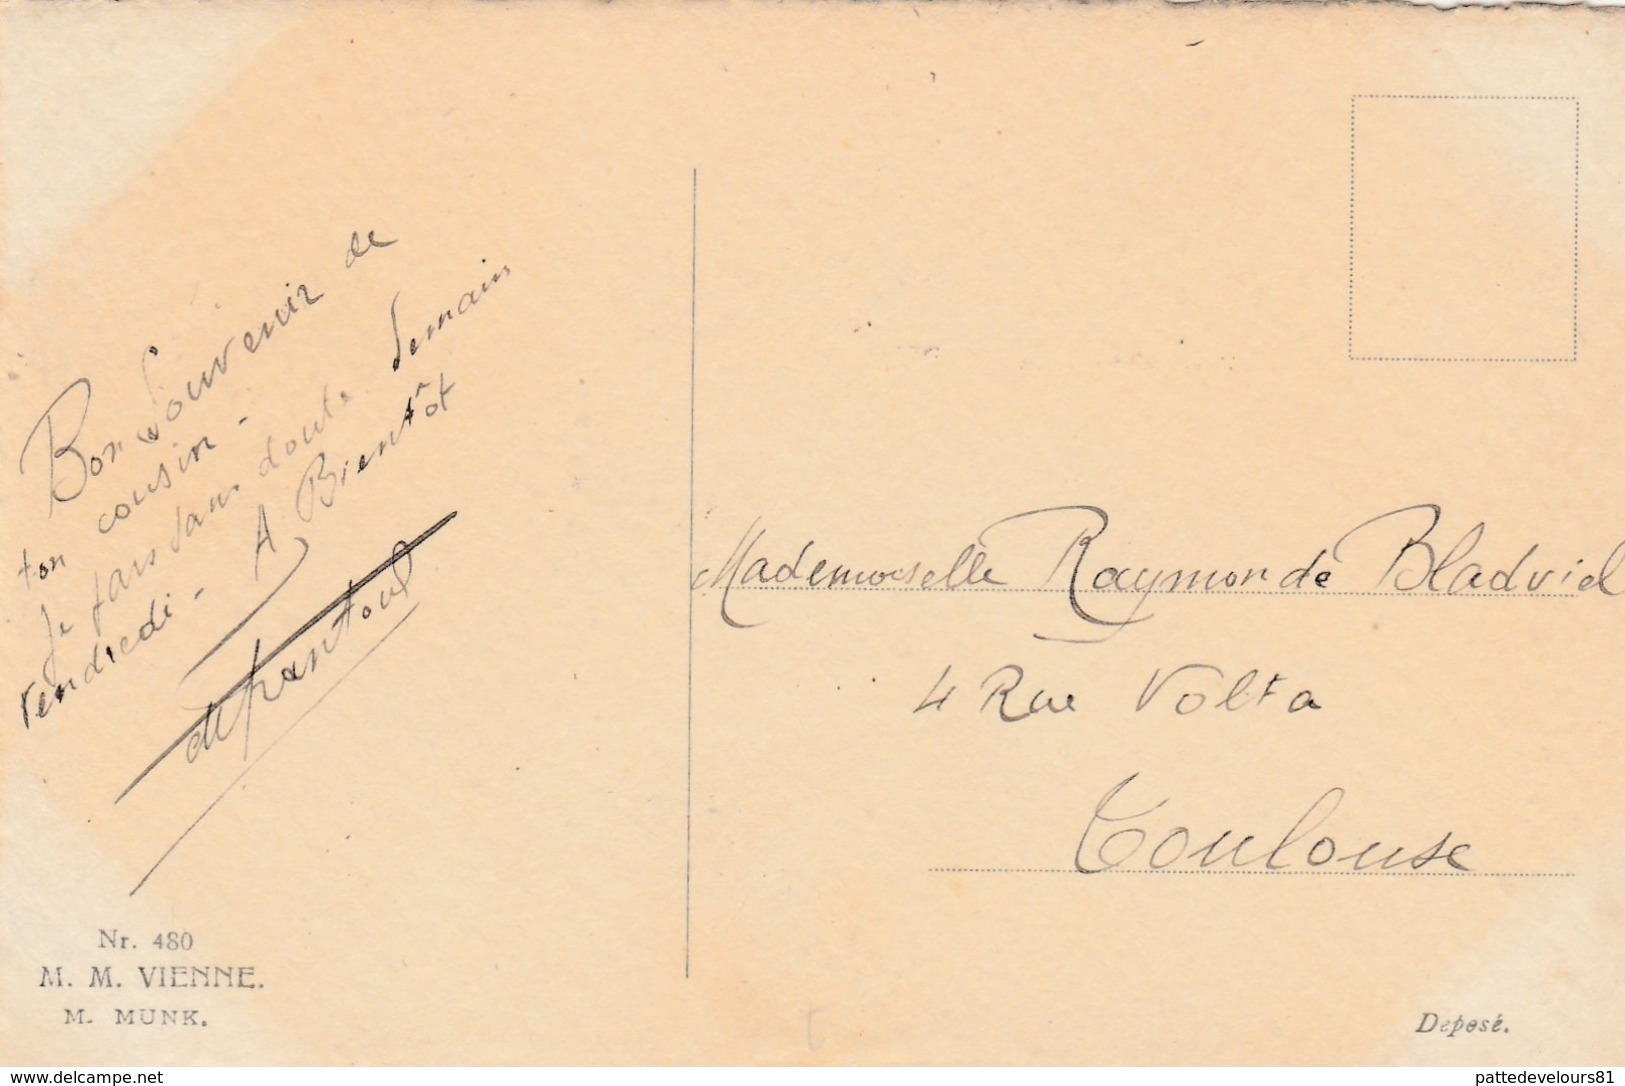 Bon Souvenir de
ton cousin -
Je pars sans doute demain
vendredi - A Bientôt
Mademoiselle Raymonde Bladviel
4 Rue Volta
Toulouse
Nr. 480
M. M. VIENNE.
M. MUNK.
Deposé.
www.delcampe.net
pattedevelours81